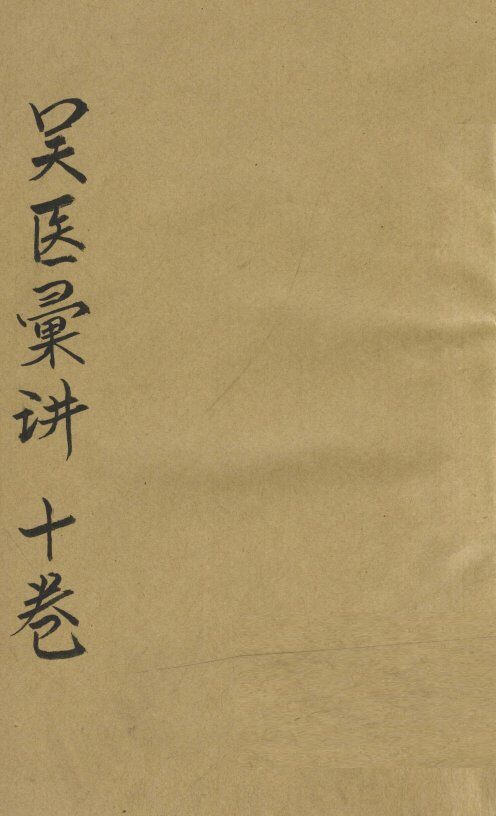 吴医彙讲 十卷